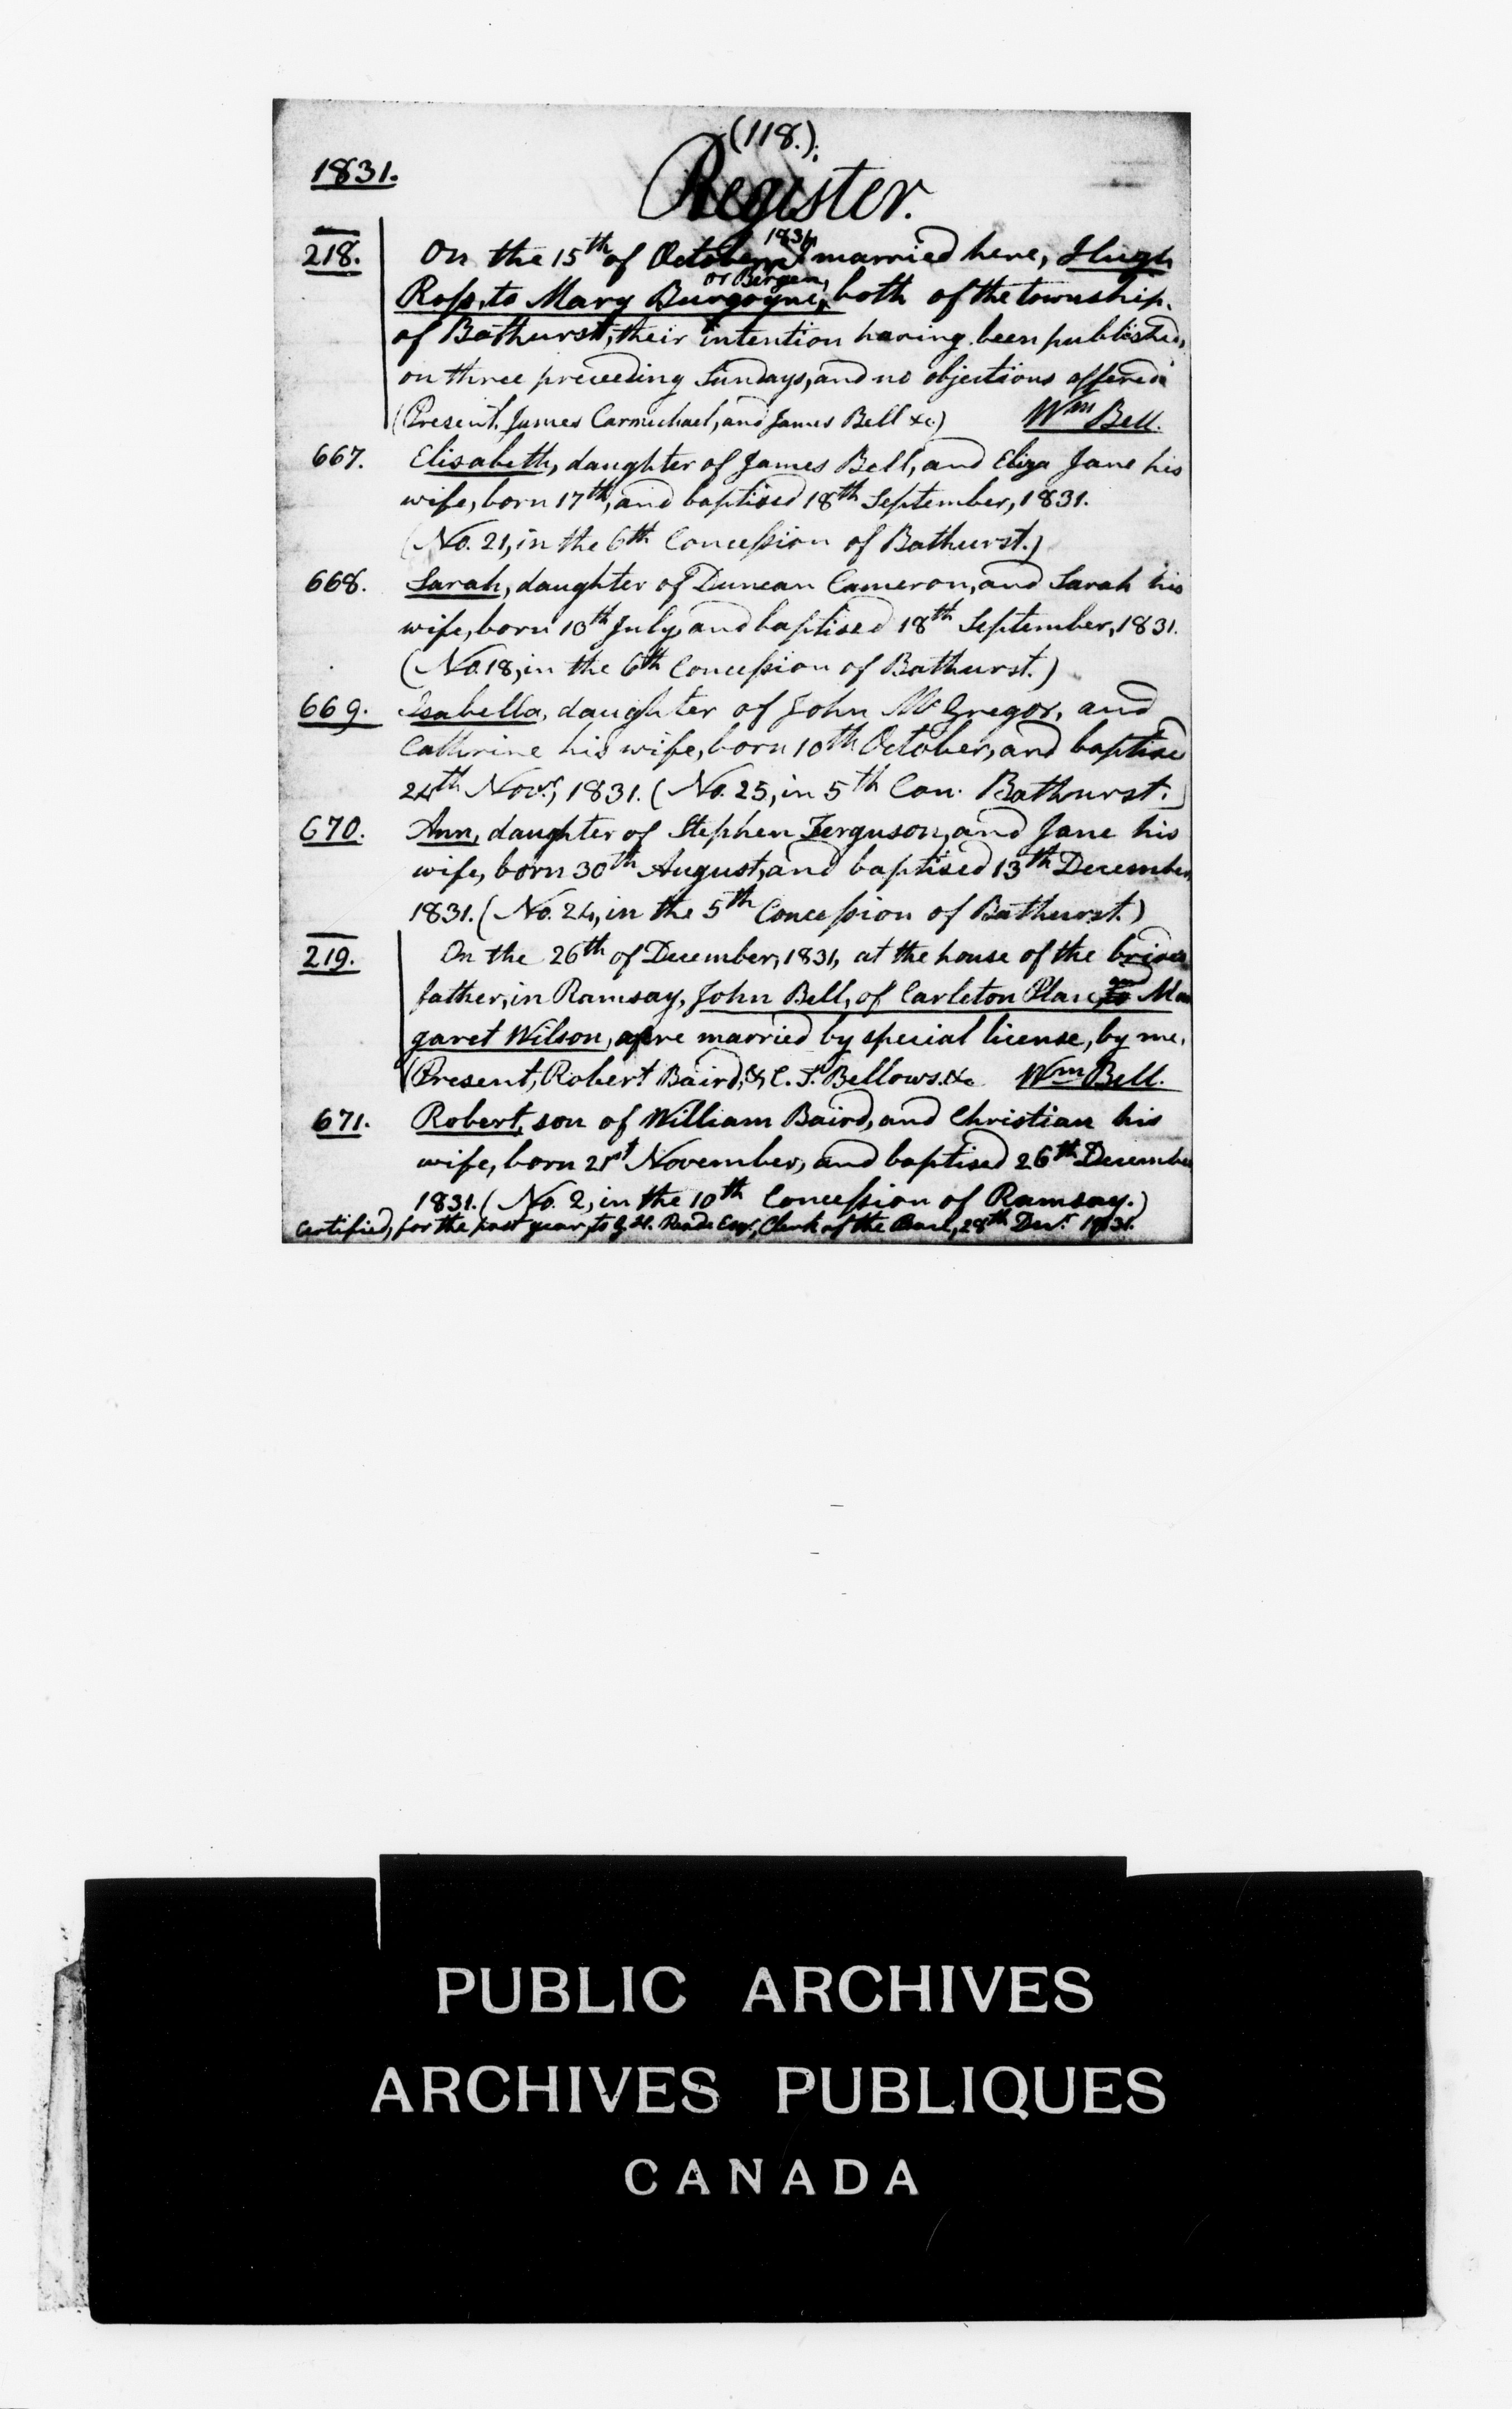 (118.)
1831.
Register.
218. On the 15th of October, 1831, married here, Hugh
Ross, to Mary Burgoyne, or Bergen, both of the township
of Bathurst, their intention having been published,
on three preceeding Sundays, and no objections offered
(Present, James Carmichael, and James Bell &c) Wm Bell.
667. Elisabeth, daughter of James Bell, and Eliza Jane his
wife, born 17th, and baptised 18th September, 1831.
(No. 21, in the 6th Concession of Bathurst.)
668. Sarah, daughter of Duncan Cameron, and Sarah his
wife, born 10th July, and baptised 18th September, 1831.
(No. 18, in the 6th Concession of Bathurst.)
669. Isabella, daughter of John McGregor, and
Catherine his wife, born 10th October, and baptised
24th Novr, 1831. (No. 25, in 5th Con. Bathurst.)
670. Ann, daughter of Stephen Ferguson, and Jane his
wife, born 30th August, and baptised 13th December,
1831. (No. 24, in the 5th Concession of Bathurst.)
219. On the 26th of December, 1831, at the house of the brides
father, in Ramsay, John Bell, of Carleton Place Mar
garet Wilson, were married by special license, by me.
(Present, Robert Baird, & C. J. Bellows. &c Wm Bell.
671. Robert, son of William Baird, and Christian his
wife, born 21st November, and baptised 26th December
1831. (No. 2, in the 10th Concession of Ramsay.)
Certified, for the past year, to G. H. Reade Esqr, Clerk of the Peace, 28th Decr 1831.
PUBLIC ARCHIVES
ARCHIVES PUBLIQUES
CANADA